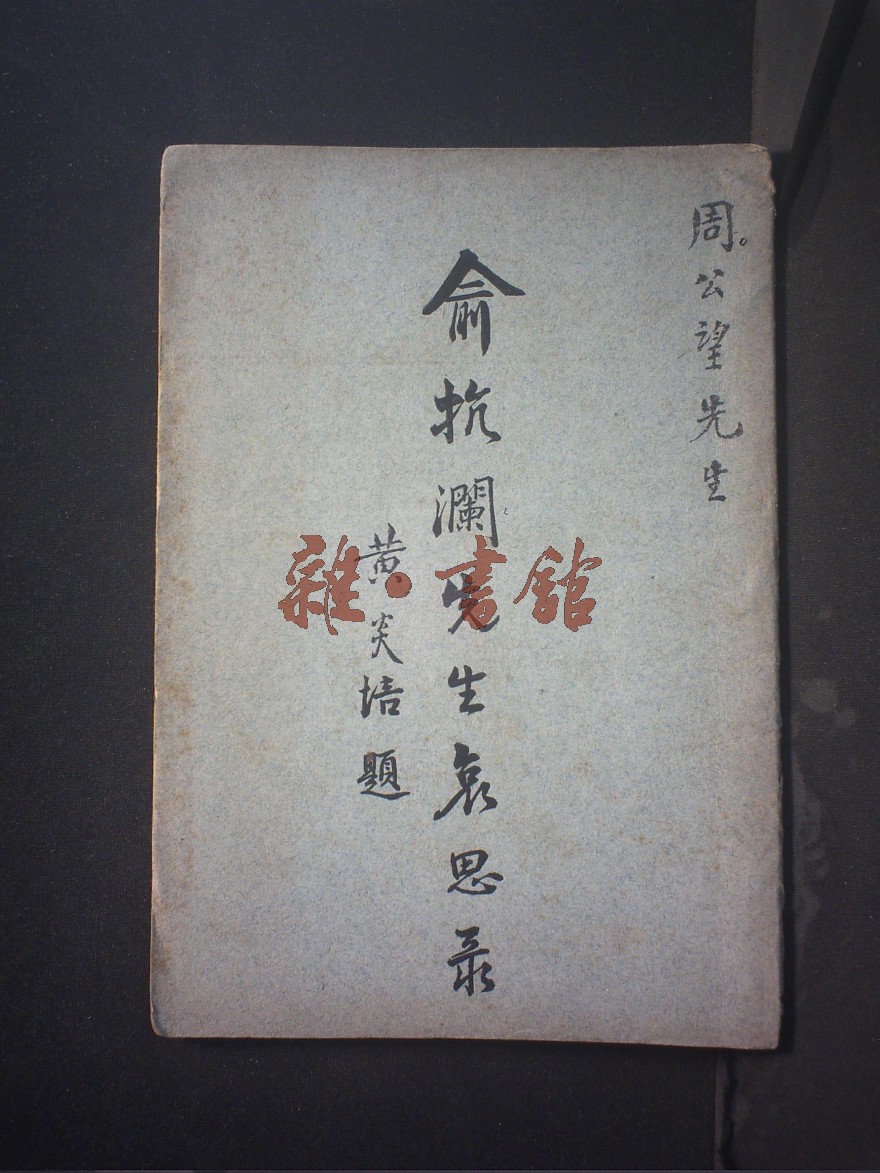 周公望先生
俞抗瀾先生哀思录
黄炎培題
雜·書館